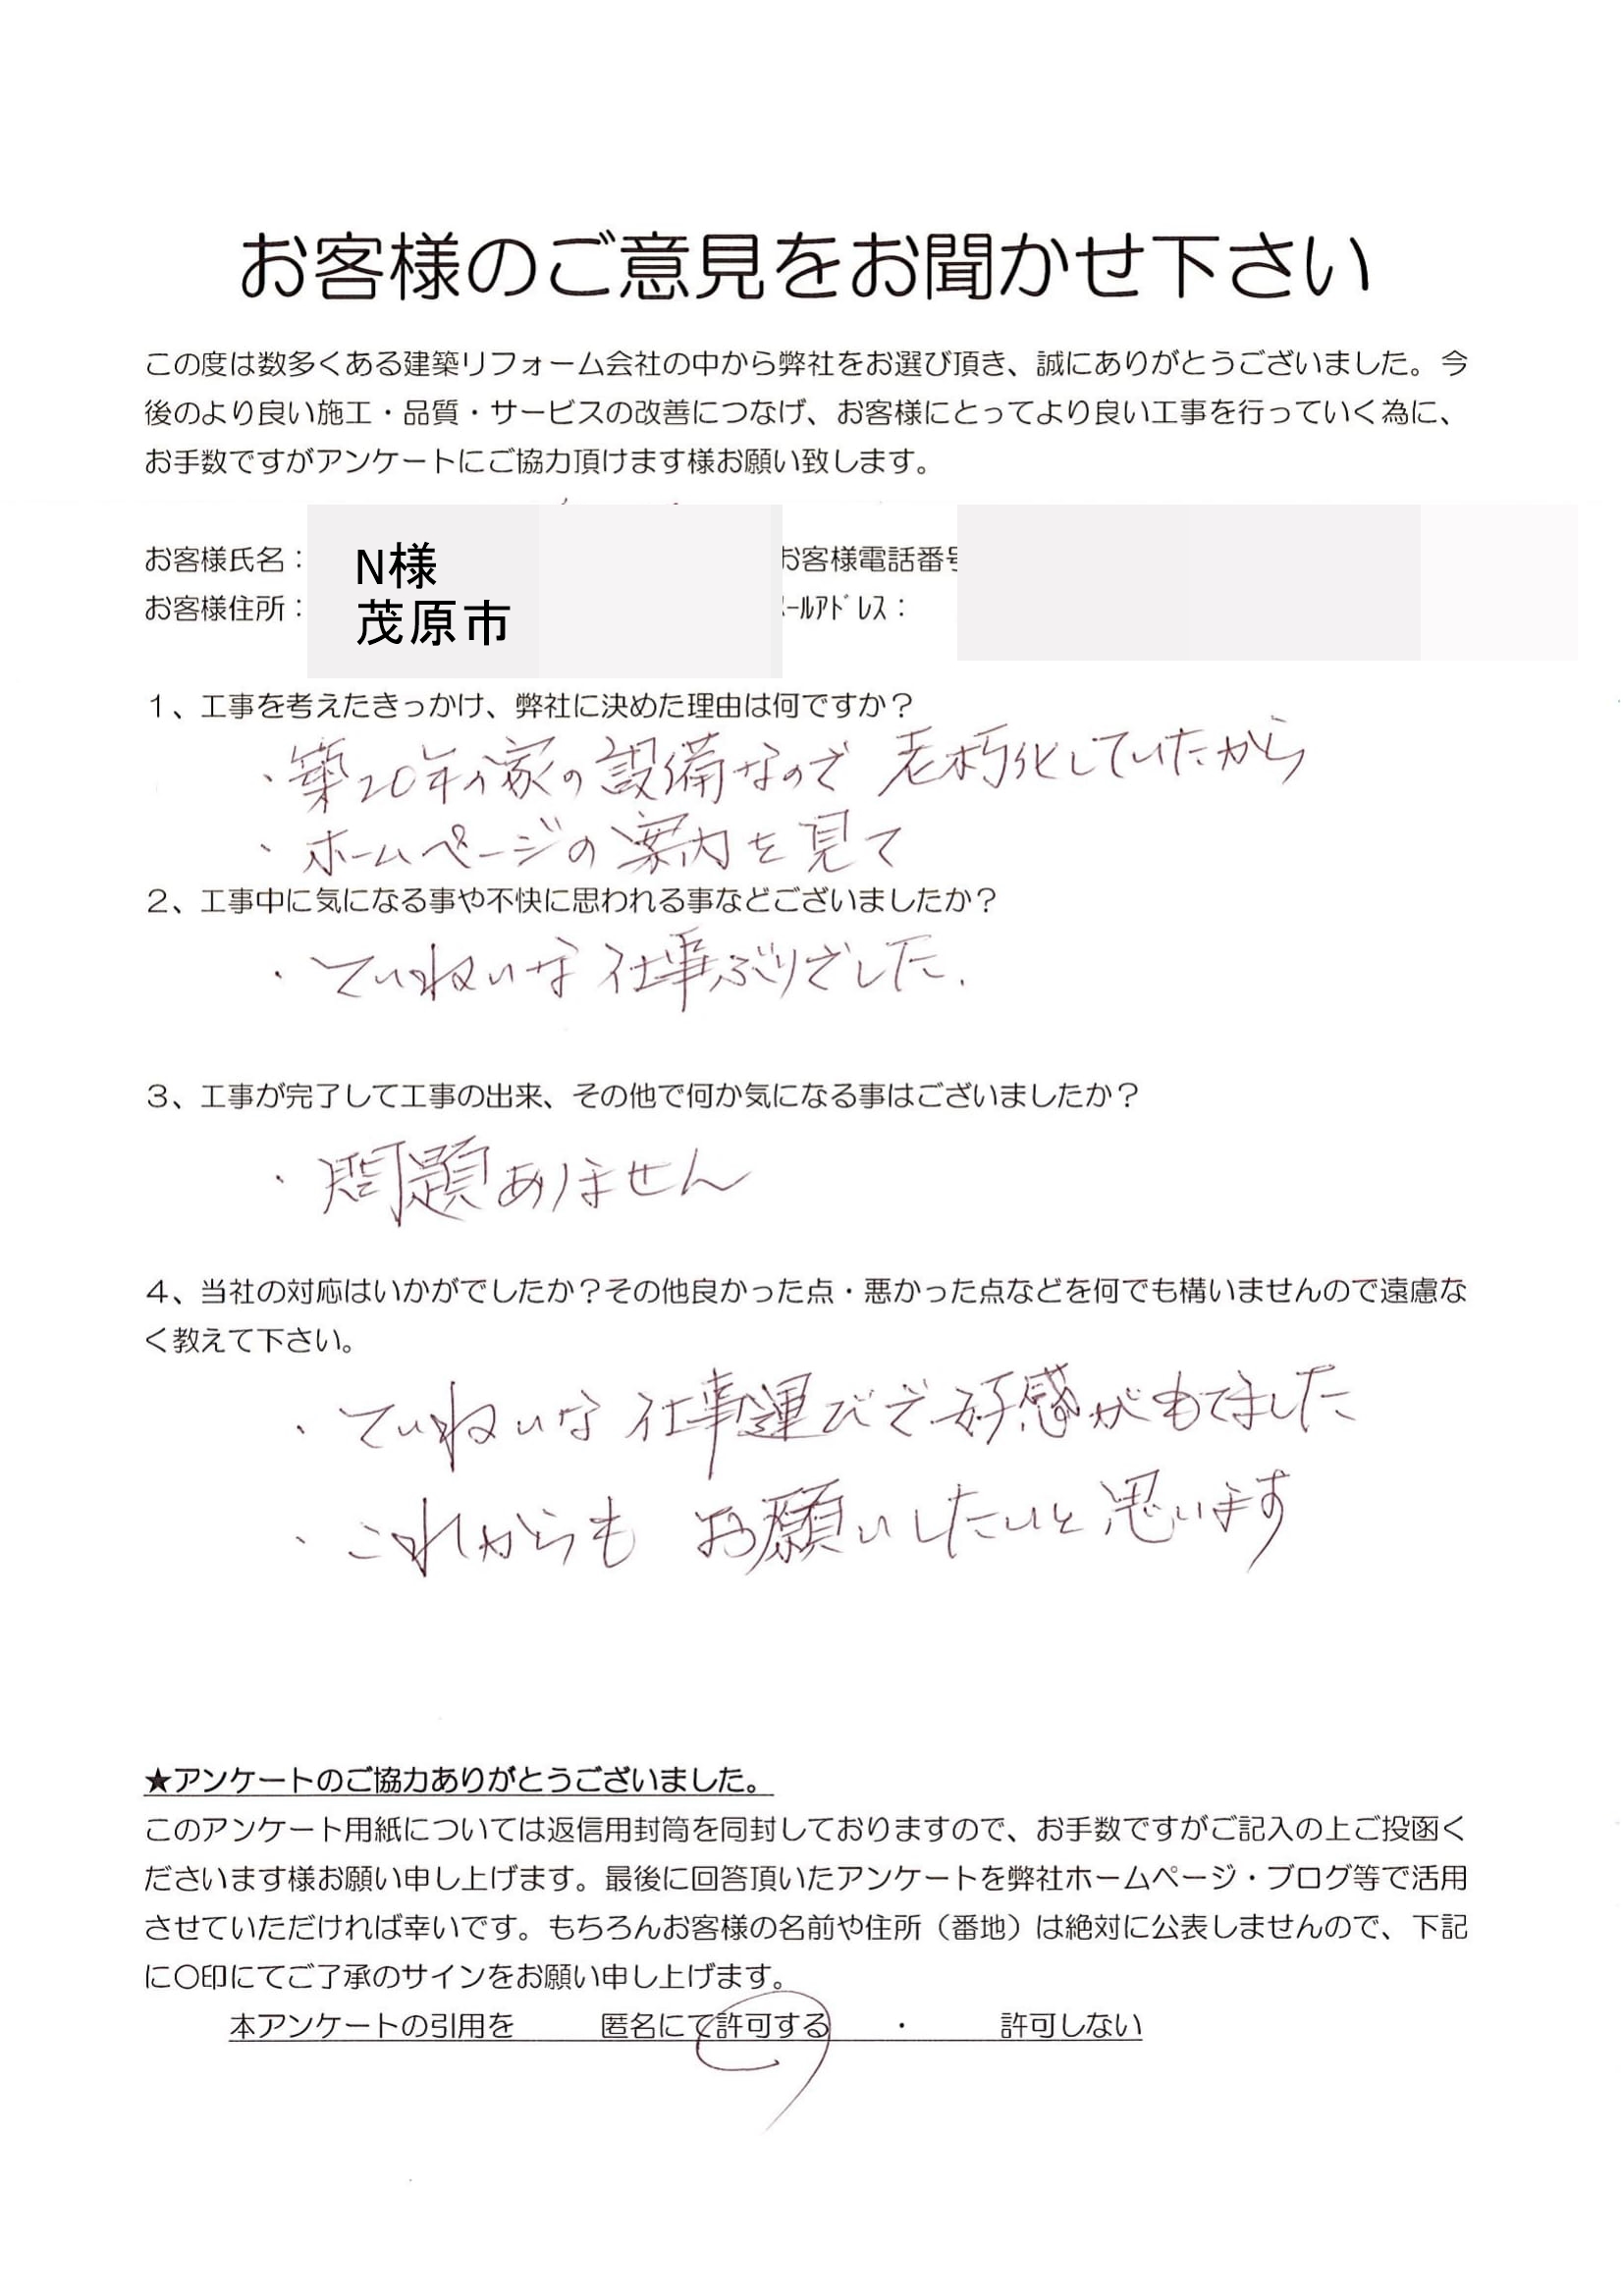 お客様のご意見をお聞かせ下さい
この度は数多くある建築リフォーム会社の中から弊社をお選び頂き、誠にありがとうございました。今
後のより良い施工・品質・サービスの改善につなげ、お客様にとってより良い工事を行っていく為に、
お手数ですがアンケートにご協力頂けます様お願い致します。
お客様氏名： N様 お客様電話番号
お客様住所： 茂原市 ﾒｰﾙｱﾄﾞﾚｽ：
1、工事を考えたきっかけ、弊社に決めた理由は何ですか？
・築20年の家の設備なので 老朽化していたから
・ホームページの案内を見て
2、工事中に気になる事や不快に思われる事などございましたか？
・ていねいな仕事ぶりでした.
3、工事が完了して工事の出来、その他で何か気になる事はございましたか？
・問題ありません
4、当社の対応はいかがでしたか？その他良かった点・悪かった点などを何でも構いませんので遠慮な
く教えて下さい。
・ていねいな仕事運びで好感がもてました
・これからも お願いしたいと思います
★アンケートのご協力ありがとうございました。
このアンケート用紙については返信用封筒を同封しておりますので、お手数ですがご記入の上ご投函く
ださいます様お願い申し上げます。最後に回答頂いたアンケートを弊社ホームページ・ブログ等で活用
させていただければ幸いです。もちろんお客様の名前や住所（番地）は絶対に公表しませんので、下記
に〇印にてご了承のサインをお願い申し上げます。
本アンケートの引用を 匿名にて許可する ・ 許可しない